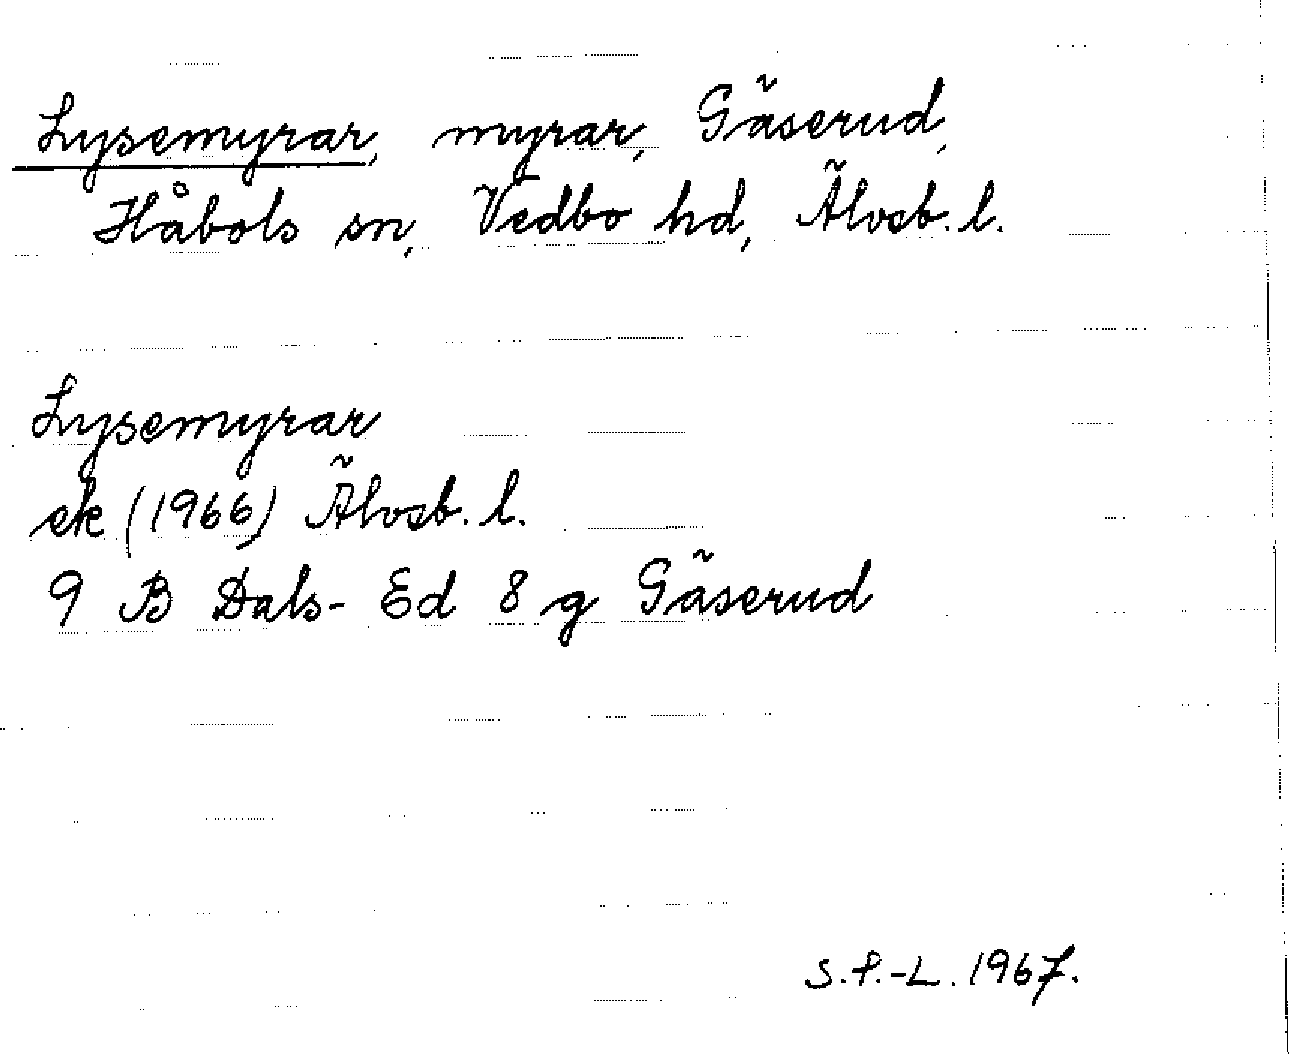 Lysemyrar, myrar, Gäserud,
Håbols sn, Vedbo hd, Älvsb. l.
Lysemyrar
ek (1966) Älvsb. l.
9 B Dals-Ed 8 g Gäserud
S.P.-L. 1967.